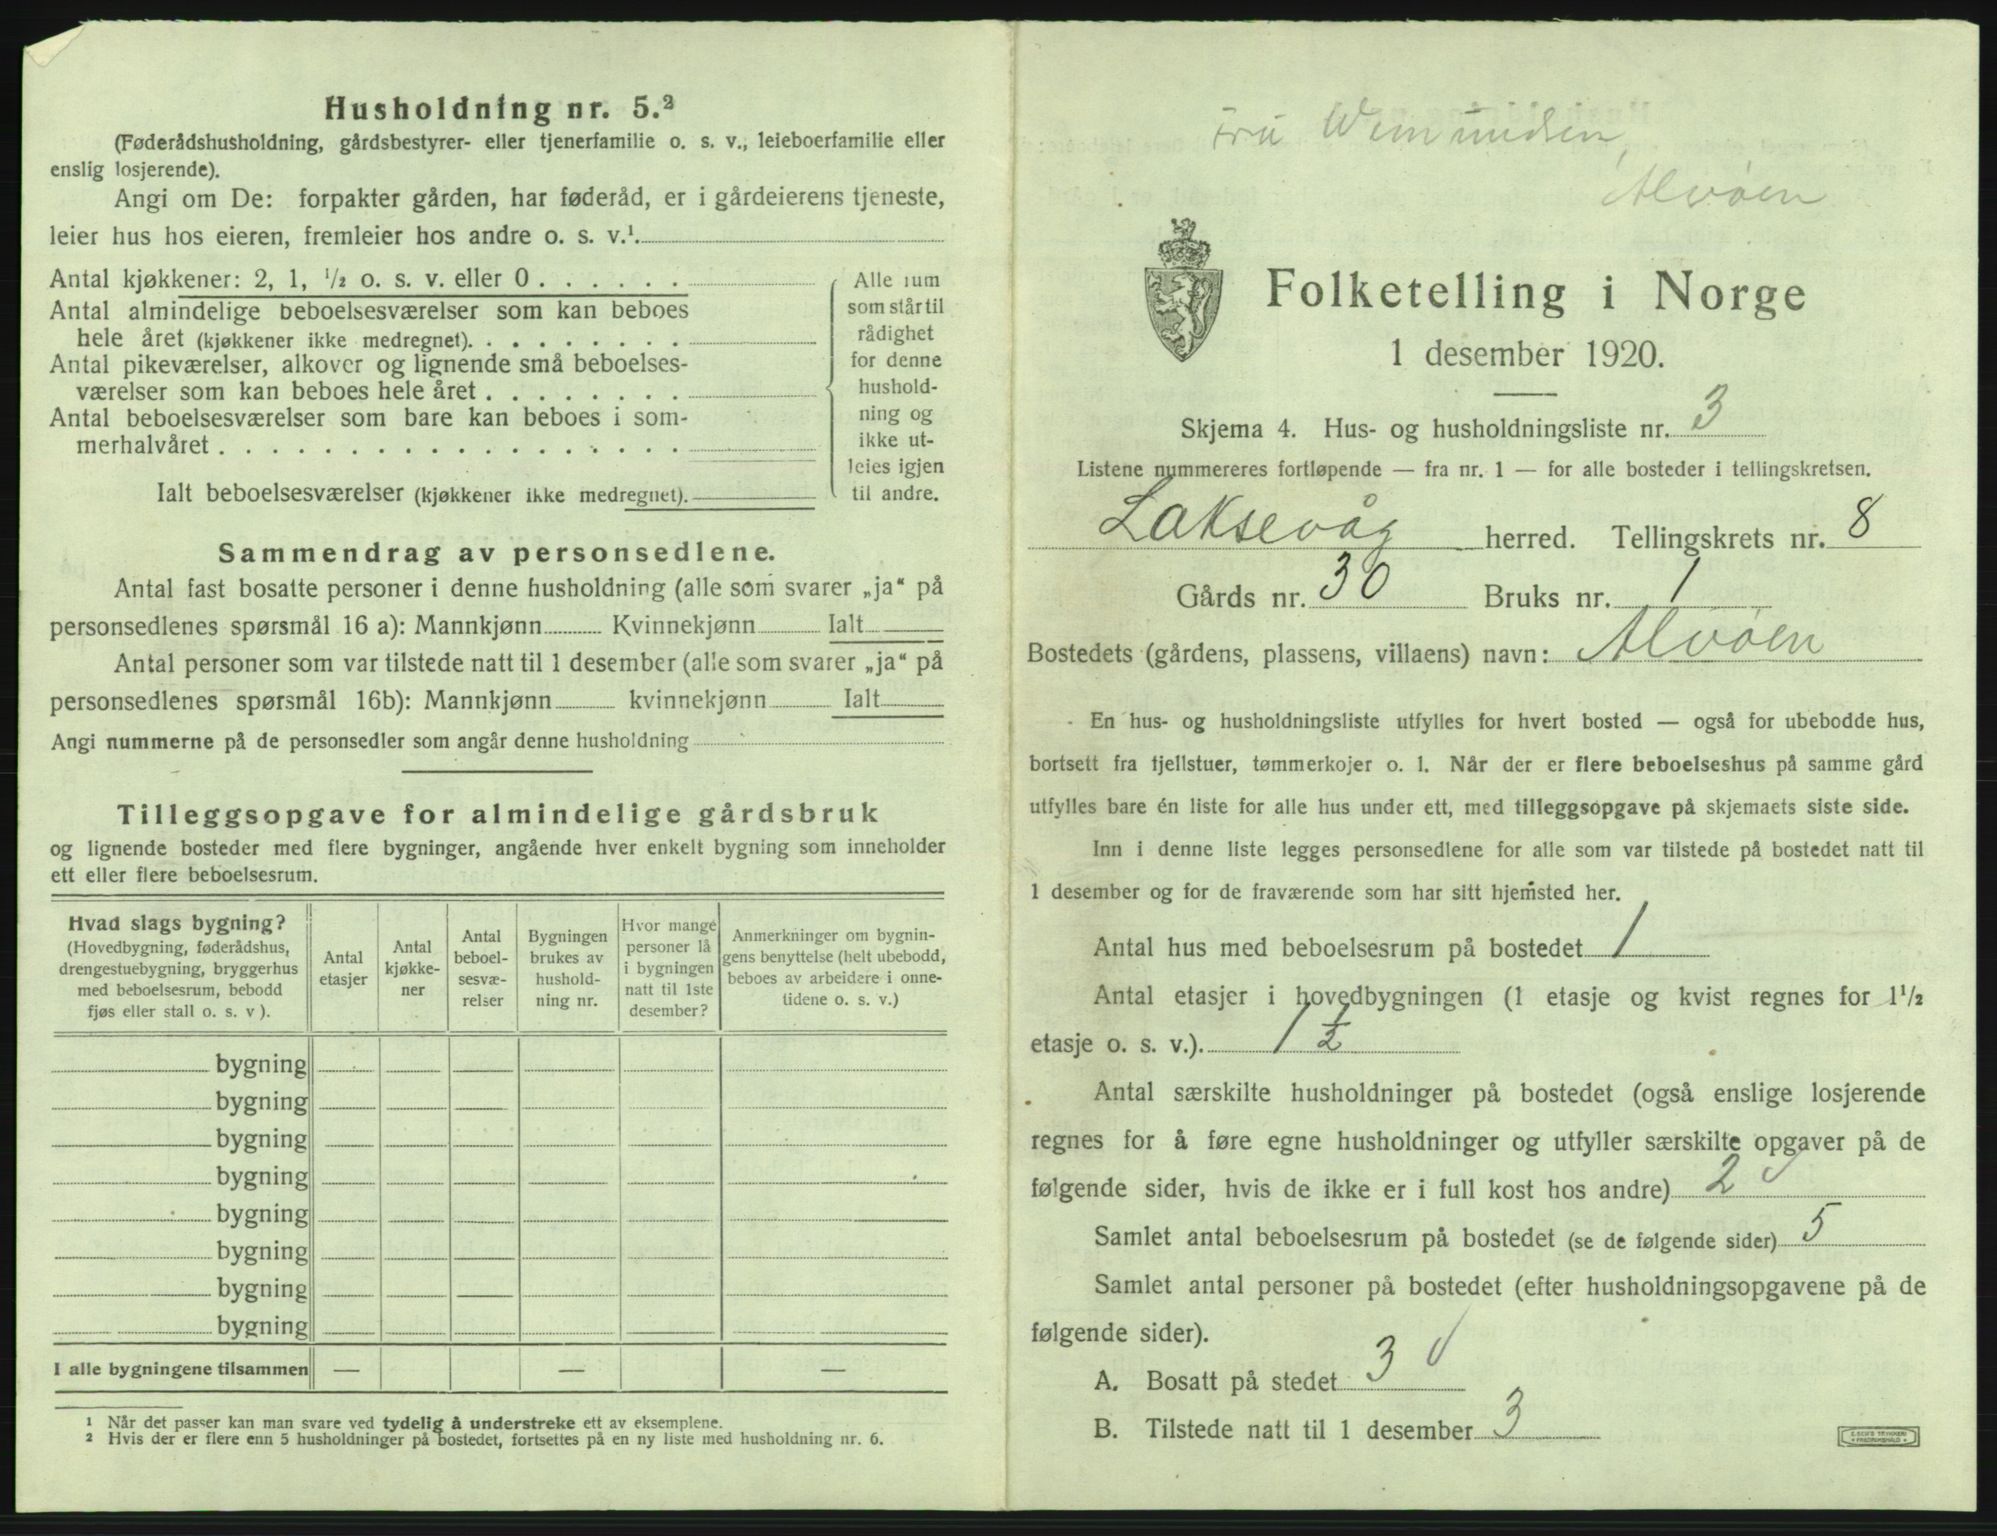 Husholdning nr. 5.²
(Føderådshusholdning, gårdsbestyrer- eller tjenerfamilie o. s. v., leieboerfamilie eller
enslig losjerende).
Angi om De: forpakter gården, har føderåd, er i gårdeierens tjeneste,
leier hus hos eieren, fremleier hos andre o. s. v.¹.
Antal kjøkkener: 2, 1, ¹/₂ o. s. v. eller 0 . . . . . .
Antal almindelige beboelsesværelser som kan beboes
hele året (kjøkkener ikke medregnet). . . . . . . . .
Antal pikeværelser, alkover og lignende små beboelses-
værelser som kan beboes hele året . . . . . . . .
Antal beboelsesværelser som bare kan beboes i som-
merhalvåret . . . . . . . . . . . . . . . . . .
Ialt beboelsesværelser (kjøkkener ikke medregnet).
Alle rum
som står til
rådighet
for denne
hushold-
ning og
ikke ut-
leies igjen
til andre.
Sammendrag av personsedlene.
Antal fast bosatte personer i denne husholdning (alle som svarer „ja“ på
personsedlenes spørsmål 16 a): Mannkjønn Kvinnekjønn Ialt
Antal personer som var tilstede natt til 1 desember (alle som svarer „ja“ på
personsedlenes spørsmål 16b): Mannkjønn kvinnekjønn Ialt
Angi nummerne på de personsedler som angår denne husholdning
Tilleggsopgave for almindelige gårdsbruk
og lignende bosteder med flere bygninger, angående hver enkelt bygning som inneholder
ett eller flere beboelsesrum.
Hvad slags bygning?
(Hovedbygning, føderådshus,
drengestuebygning, bryggerhus
med beboelsesrum, bebodd
fjøs eller stall o. s. v ).
Antal
etasjer
Antal
kjøkke-
ner
Antal
beboel-
sesvæ-
relser
Bygningen
brukes av
hushold-
ning nr.
Hvor mange
personer lå
i bygningen
natt til 1ste
desember?
Anmerkninger om bygnin-
gens benyttelse (helt ubebodd,
beboes av arbeidere i onne-
tidene o. s. v.)
bygning
bygning
bygning
bygning
bygning
bygning
bygning
bygning
I alle bygningene tilsammen — — —
¹ Når det passer kan man svare ved tydelig å understreke ett av eksemplene.
² Hvis der er flere enn 5 husholdninger på bostedet, fortsettes på en ny liste med husholdning nr. 6.
Fru Wemundsen,
Alvøen
Folketelling i Norge
1 desember 1920.
Skjema 4. Hus- og husholdningsliste nr. 3
Listene nummereres fortløpende — fra nr. 1 — for alle bosteder i tellingskretsen.
Laksevåg herred. Tellingskrets nr. 8
Gårds nr. 30 Bruks nr. 1
Bostedets (gårdens, plassens, villaens) navn: Alvøen
En hus- og husholdningsliste utfylles for hvert bosted — også for ubebodde hus,
bortsett fra fjellstuer, tømmerkojer o. l. Når der er flere beboelseshus på samme gård
utfylles bare én liste for alle hus under ett, med tilleggsopgave på skjemaets siste side.
Inn i denne liste legges personsedlene for alle som var tilstede på bostedet natt til
1 desember og for de fraværende som har sitt hjemsted her.
Antal hus med beboelsesrum på bostedet 1
Antal etasjer i hovedbygningen (1 etasje og kvist regnes for 1¹/₂
etasje o. s. v.). 1 ½
Antal særskilte husholdninger på bostedet (også enslige losjerende
regnes for å føre egne husholdninger og utfyller særskilte opgaver på de
følgende sider, hvis de ikke er i full kost hos andre) 2
Samlet antal beboelsesrum på bostedet (se de følgende sider) 5
Samlet antal personer på bostedet (efter husholdningsopgavene på de
følgende sider).
A. Bosatt på stedet 3
B. Tilstede natt til 1 desember 3